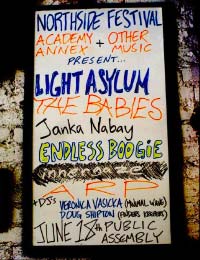 NORTHSIDE FESTIVAL
ACADEMY + OTHER
ANNEX MUSIC
PRESENT...
LIGHT ASYLUM
THE BABIES
Janka Nabay
ENDLESS BOOGIE
ARP
+DJ's VERONICA VASICKA (MINIMAL WAVE)
DOUG SHIPTON (FINDERS KEEPERS)
JUNE 18th PUBLIC
ASSEMBLY